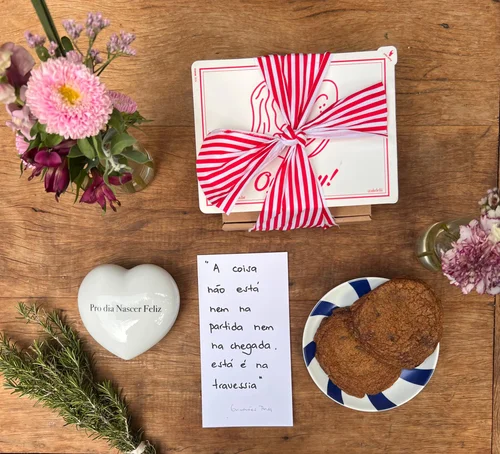 Pro dia Nascer Feliz
"A coisa
não está
nem na
partida nem
na chegada.
está é na
travessia"